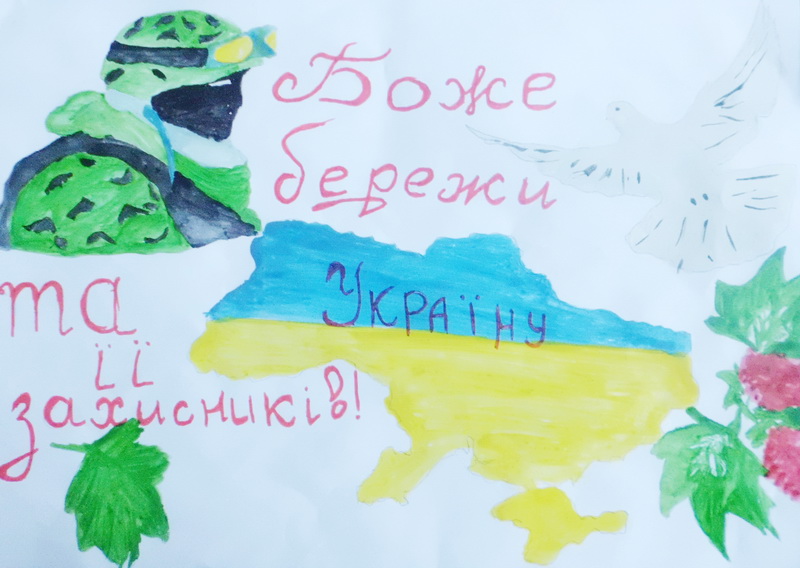 Боже
бережи
Україну
та
її
захисників!